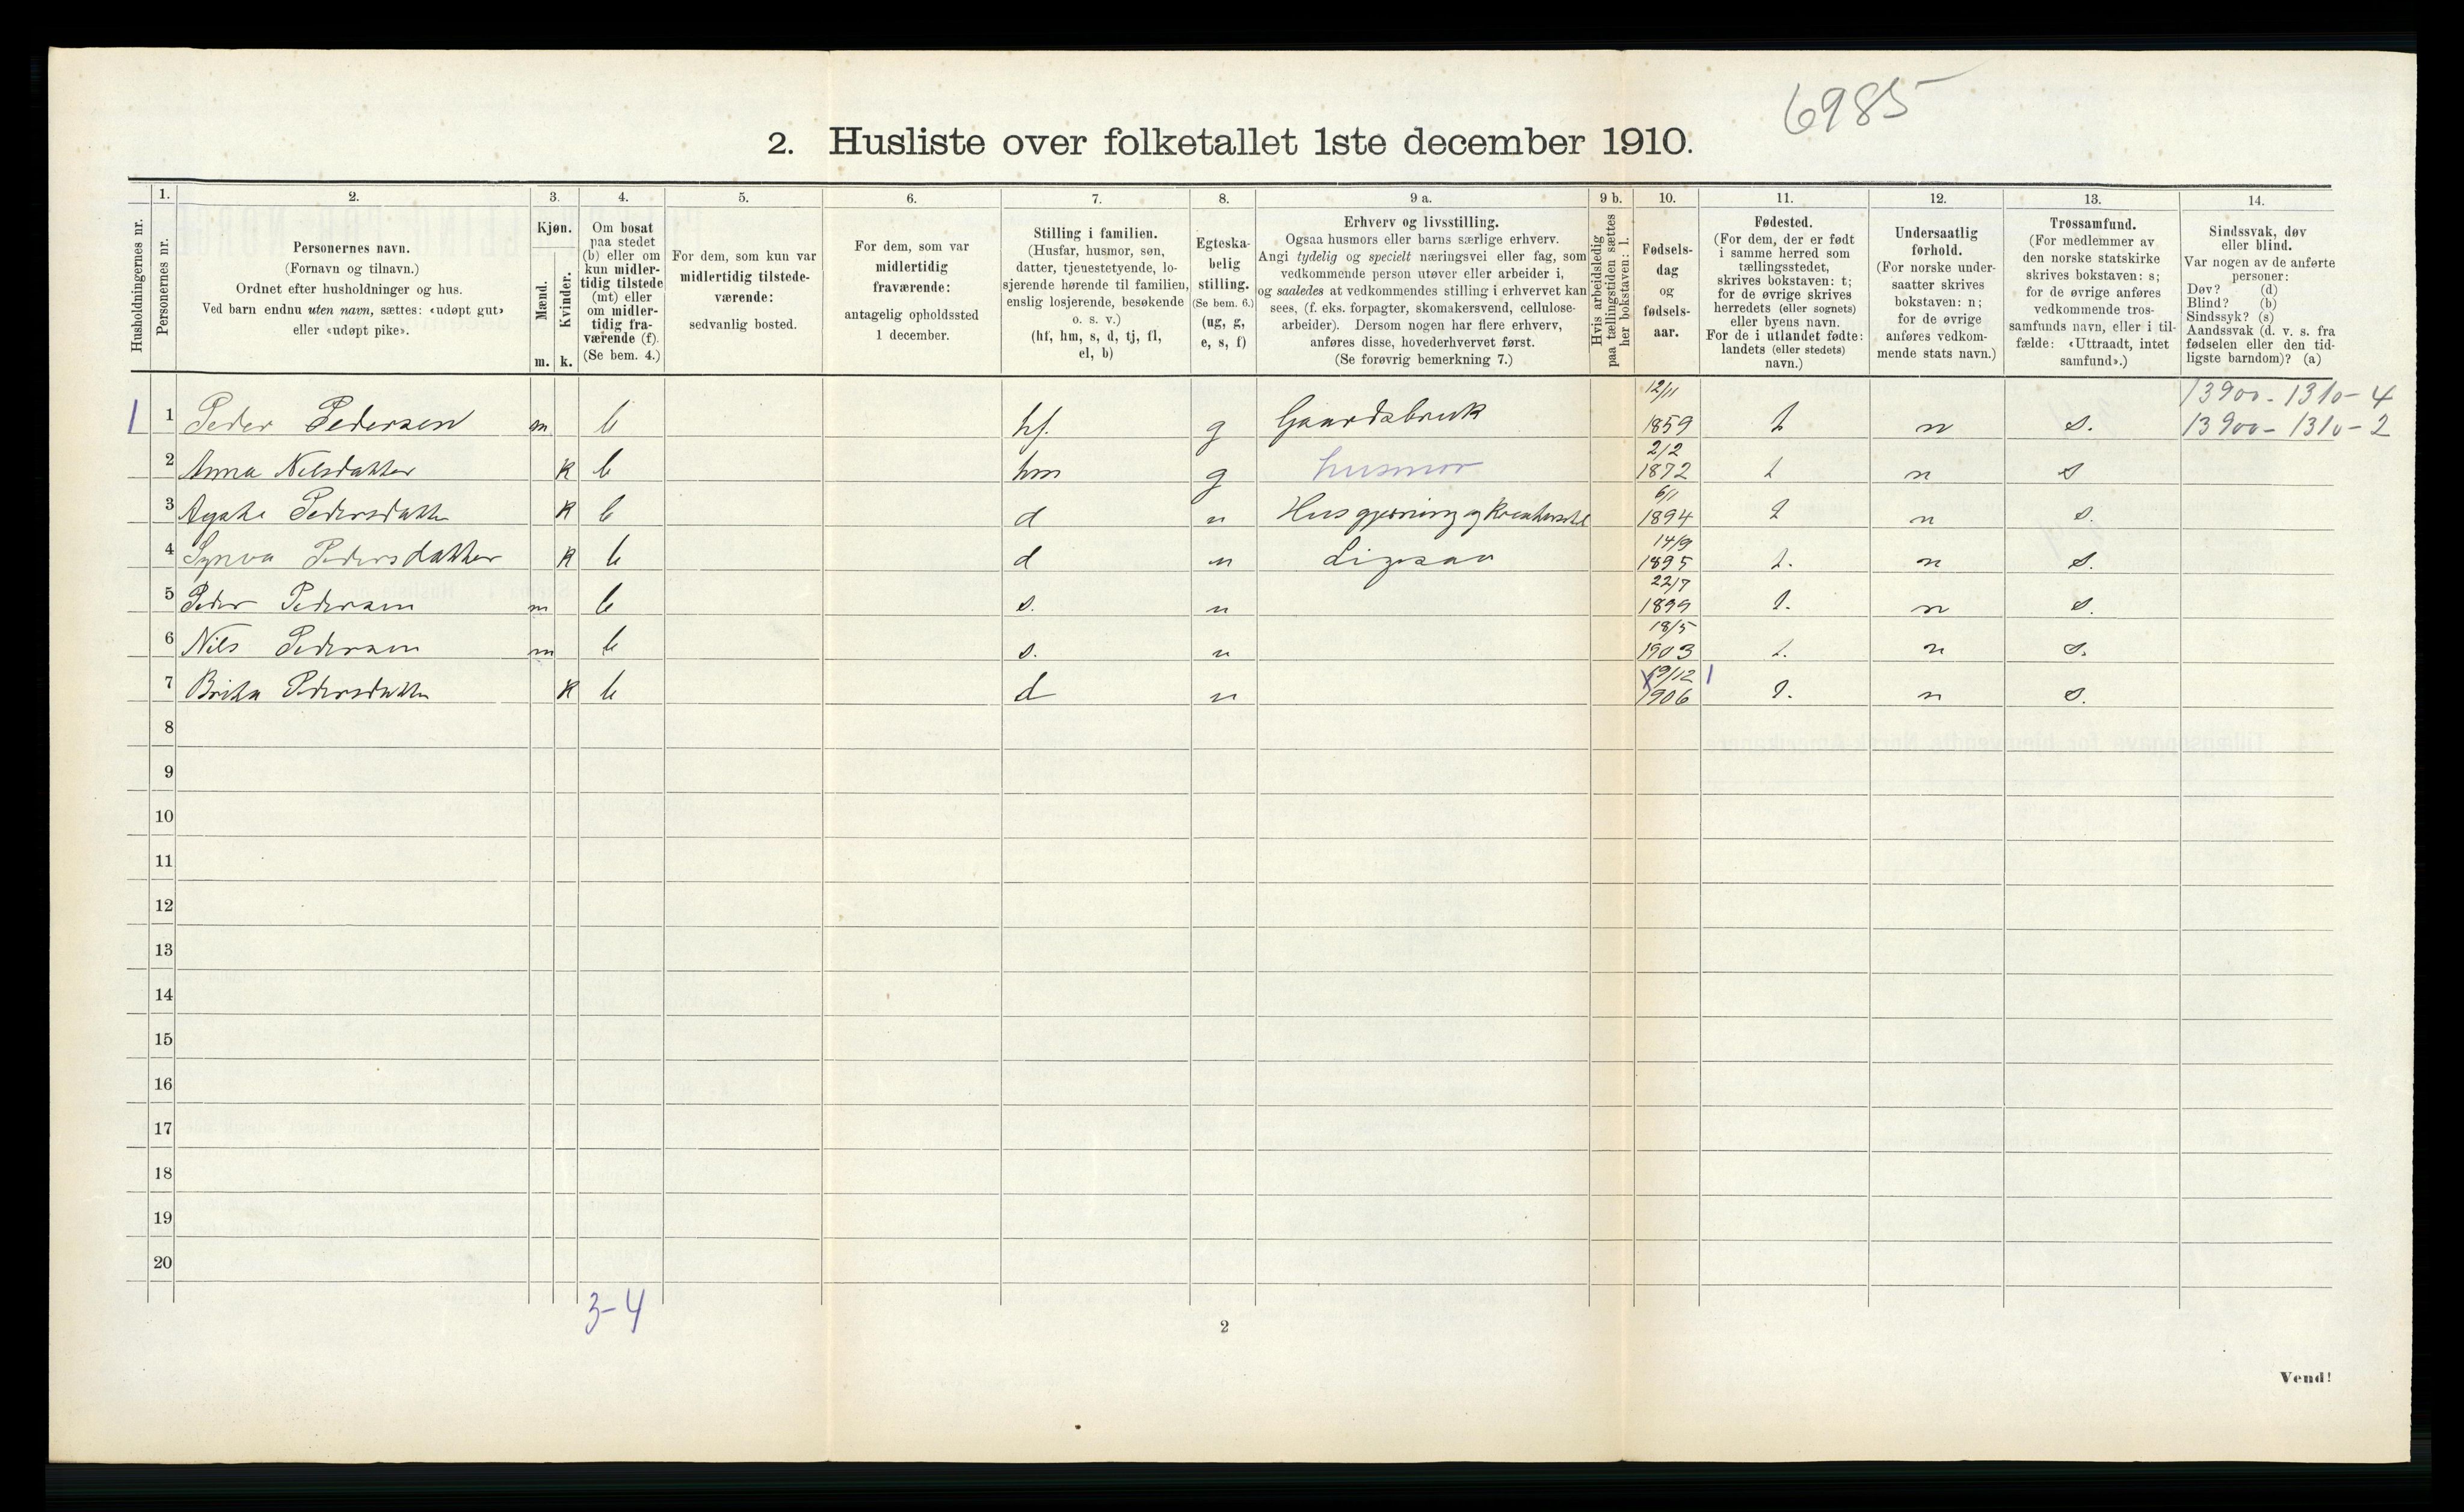 6985
2. Husliste over folketallet 1ste december 1910.
Husholdningernes nr.
1.
Personernes nr.
2.
Personernes navn.
(Fornavn og tilnavn.)
Ordnet efter husholdninger og hus.
Ved barn endnu uten navn, sættes: «udøpt gut»
eller «udøpt pike».
3.
Kjøn.
Mænd.
Kvinder.
m. k.
4.
Om bosat
paa stedet
(b) eller om
kun midler-
tidig tilstede
(mt) eller
om midler-
tidig fra-
værende (f).
(Se bem. 4.)
5.
For dem, som kun var
midlertidig tilstede-
værende:
sedvanlig bosted.
6.
For dem, som var
midlertidig
fraværende:
antagelig opholdssted
1 december.
7.
Stilling i familien.
(Husfar, husmor, søn,
datter, tjenestetyende, lo-
sjerende hørende til familien,
enslig losjerende, besøkende
o. s. v.)
(hf, hm, s, d, tj, fl,
el, b)
8.
Egteska-
belig
stilling.
(Se bem. 6.)
(ug, g,
e, s, f)
9 a.
Erhverv og livsstilling.
Ogsaa husmors eller barns særlige erhverv.
Angi tydelig og specielt næringsvei eller fag, som
vedkommende person utøver eller arbeider i,
og saaledes at vedkommendes stilling i erhvervet kan
sees, (f. eks. forpagter, skomakersvend, cellulose-
arbeider). Dersom nogen har flere erhverv,
anføres disse, hovederhvervet først.
(Se forøvrig bemerkning 7.)
9 b.
Hvis arbeidsledig
paa tællingstiden sættes
her bokstaven: l.
10.
Fødsels-
dag
og
fødsels-
aar.
11.
Fødested.
(For dem, der er født
i samme herred som
tællingsstedet,
skrives bokstaven: t;
for de øvrige skrives
herredets (eller sognets)
eller byens navn.
For de i utlandet fødte:
landets (eller stedets)
navn.)
12.
Undersaatlig
forhold.
(For norske under-
saatter skrives
bokstaven: n;
for de øvrige
anføres vedkom-
mende stats navn.)
13.
Trossamfund.
(For medlemmer av
den norske statskirke
skrives bokstaven: s;
for de øvrige anføres
vedkommende tros-
samfunds navn, eller i til-
fælde: «Uttraadt, intet
samfund».)
14.
Sindssvak, døv
eller blind.
Var nogen av de anførte
personer:
Døv? (d)
Blind? (b)
Sindssyk? (s)
Aandssvak (d. v. s. fra
fødselen eller den tid-
ligste barndom)? (a)
13900 - 1310 - 4
1 1 Peder Pedersen m b hf. g Gaardsbruk 12/11 1859 t n s. 13900 - 1310 - 2
2 Anna Nilsdatter k b hm g husmor 2/2 1872 t n s
3 Agate Pedersdatter k b d u Husgjerning og 6/1 1894 t n s.
4 Synva Pedersdatter k b d u 14/9 1895 t. n s.
5 Peder Pedersen m b s. u 22/7 1899 t. n s.
6 Nils Pedersen m b s. u 18/5 1903 t. n s.
7 Brita Pedersdatter k b d u 19/12 1906 t. n s.
8
9
10
11
12
13
14
15
16
17
18
19
20
3-4
2
Vend!